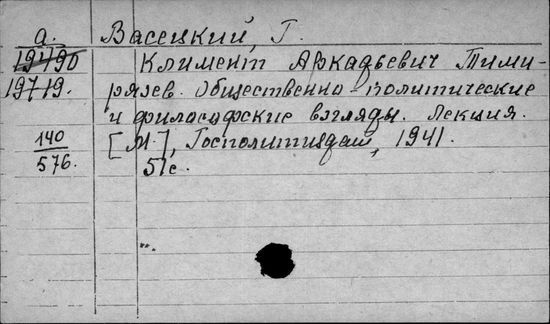 а. Васецкий, Г.
19490 Климент Аркадьевич Тими-
19719. рязев. Общественно-политические
и философские взгляды. Лекция.
140 [М.], Госполитиздат, 1941.
576. 51с.